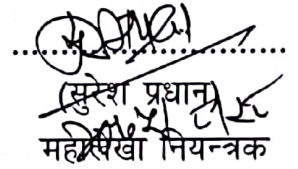 (सुरेश प्रधान)
महालेखा नियन्त्रक